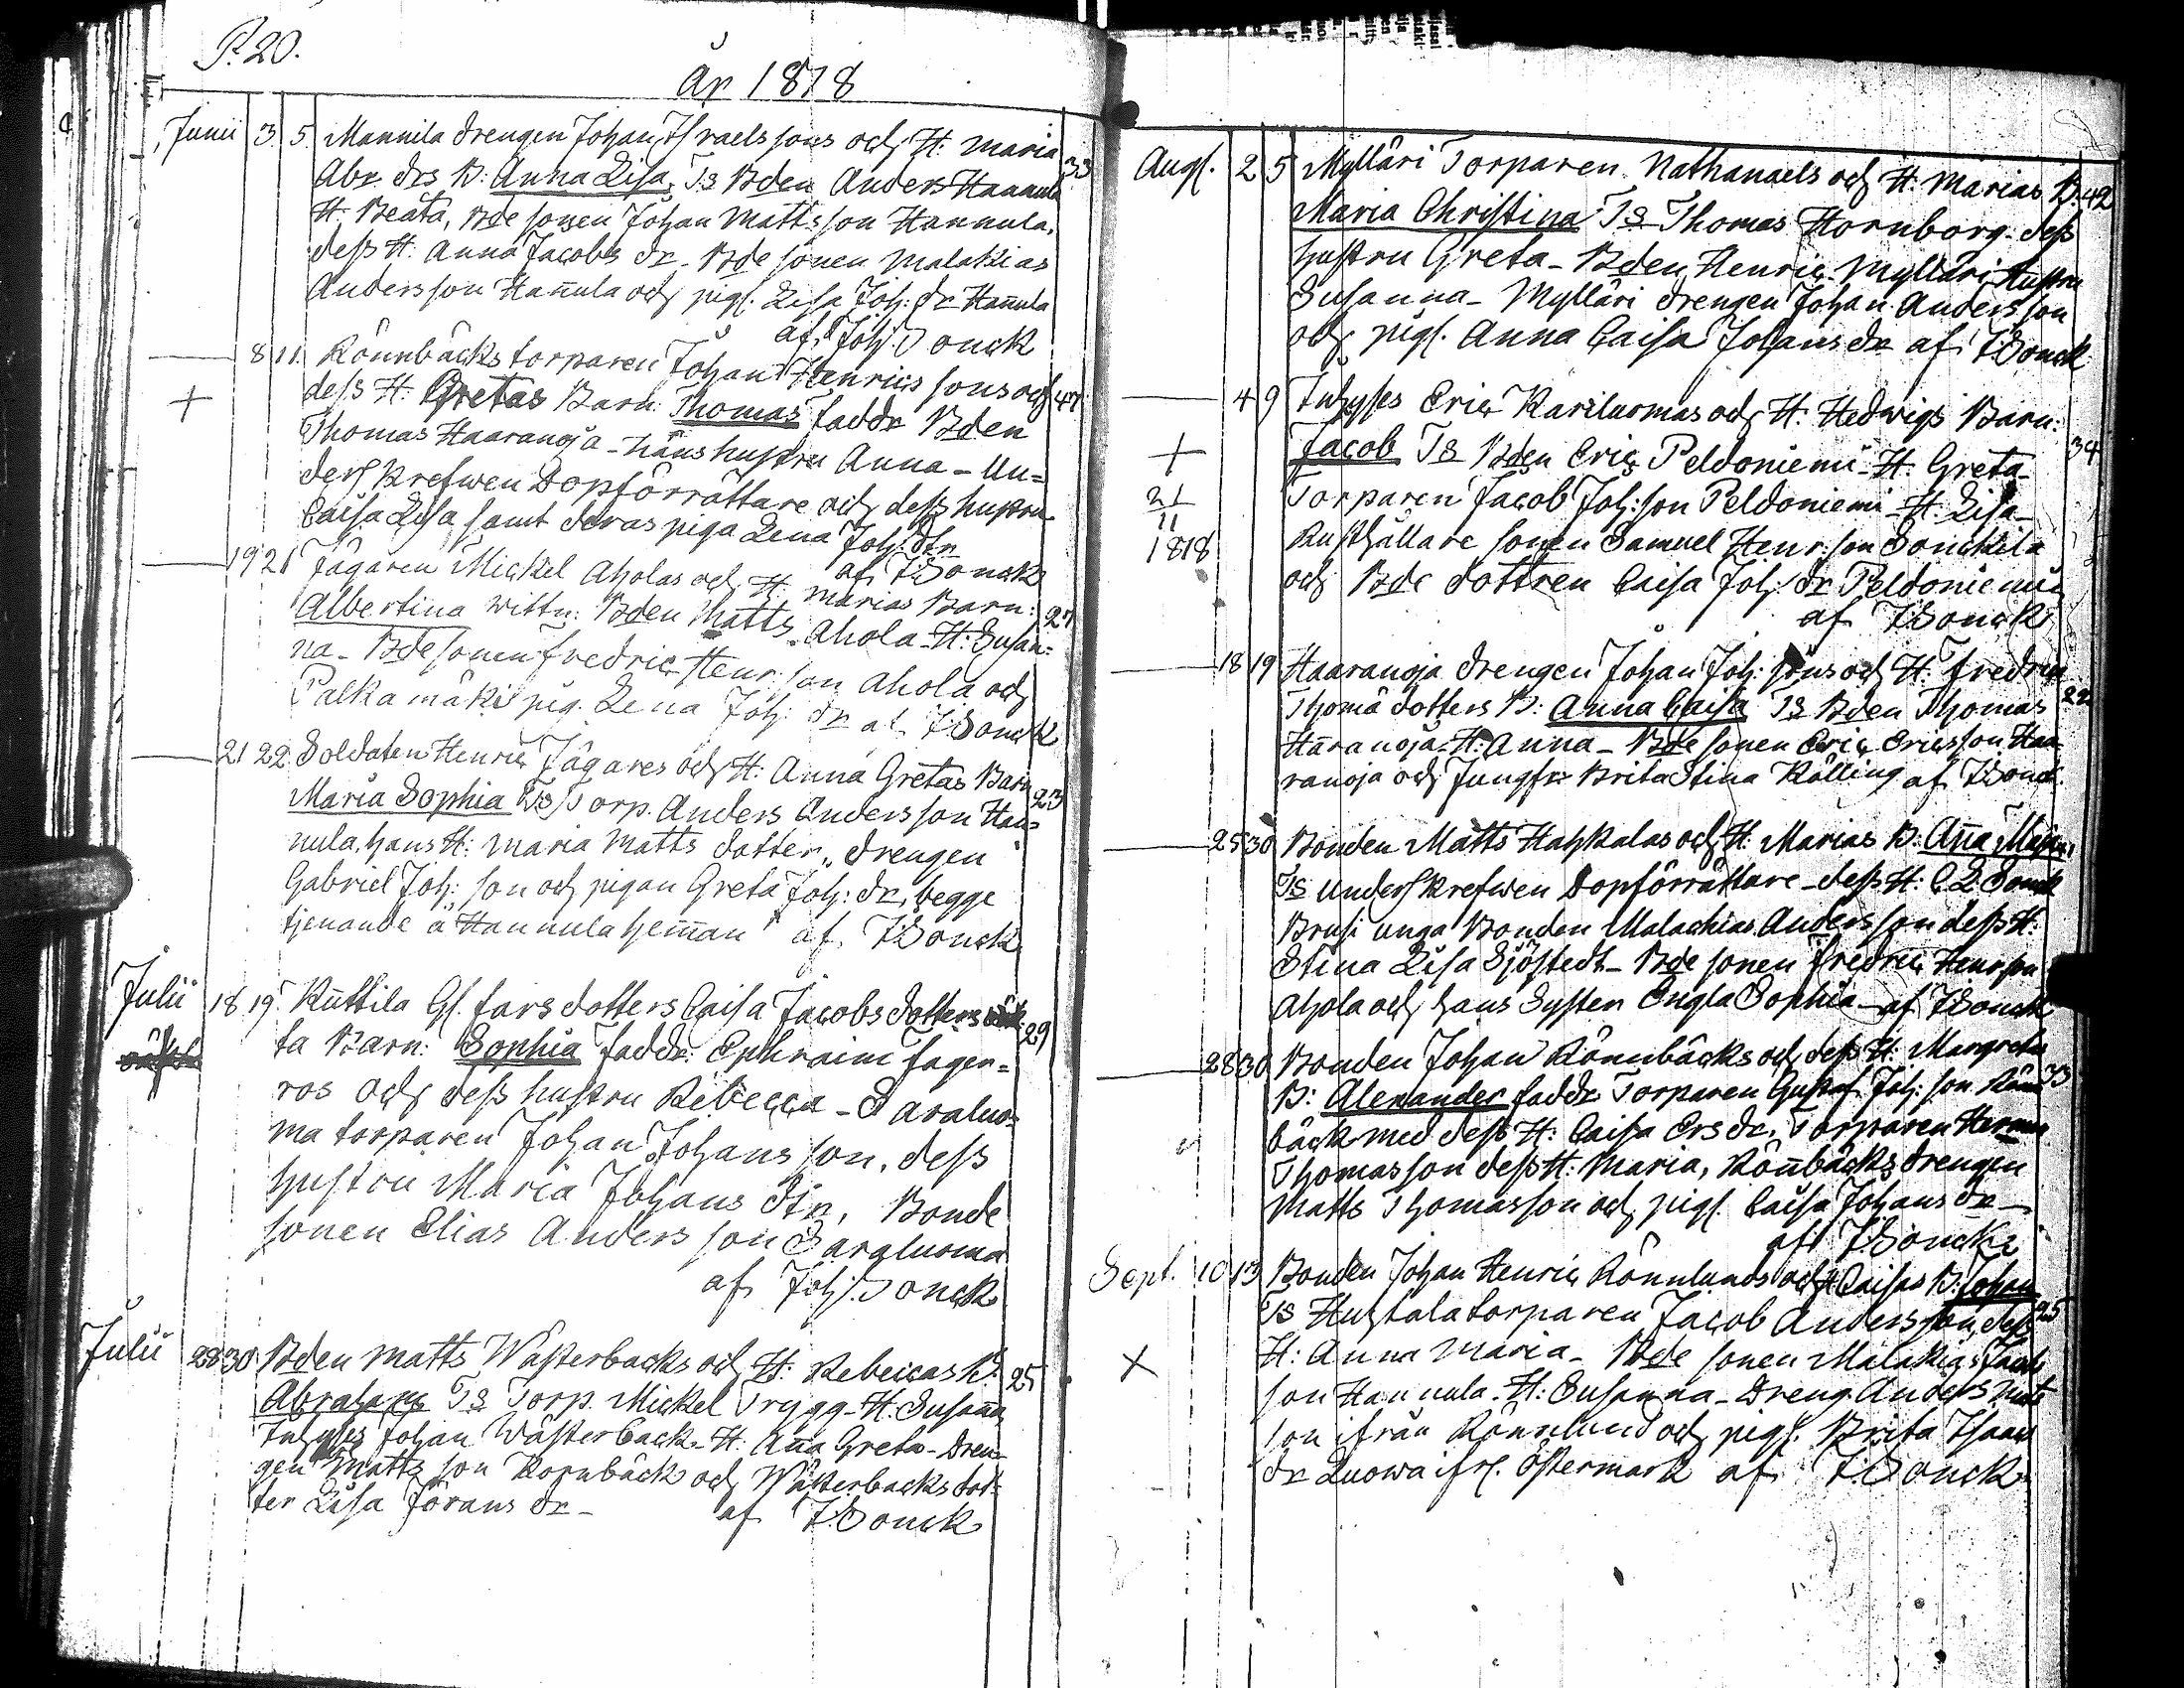 P. 20.
År 1818
Junii 3 5 Mannila drengen Johan Israelssons och H: Maria
Abr. drs B: Anna Lisa, Ts Bden Anders Hannula 33
H: Beata, Bde sonen Johan Mattsson Hannula,
dess H: Anna Jacobs dr - Bde sonen Malakias
Andersson Hañula och pig. Lisa Joh: dr Hañula
af Joh. Sonck
8 11 Rönnbäcks torparen Johan Henrics sons och
+ dess H: Gretas Barn: Thomas faddr Bden 47
Thomas Haaranoja - hans hustru Anna - Un=
derskrefwen Dopförrättare och dess hustru
Caisa Lisa samt deras piga Lena Joh: dtr
af JSonck
19 21 Jägaren Mickel Aholas och H: Marias Barn:
Albertina wittn: Bden Matts Ahola - H: Susan= 27
na - Bde sonen Fredric Henr: son Ahola och
Palkamäki pig. Lena Joh: dr af JSonck
21 22 Soldaten Henric Jägares och H: Anna Gretas Barn
Maria Sophia Ts Torp. Anders Andersson Han= 23
nula, hans H: Maria Matts dotter, drengen
Gabriel Joh: son och pigan Greta Joh: dr, begge
tjenande å Hannula heman af JSonck
Julii 18 19 Kuttila Gl. fars dotters Caisa Jacobs dotters
ta Barn: Sophia Faddr: Ephraim Fager= 29
ros och dess hustru Rebecca - Saraluo=
ma torparen Johan Johansson, dess
hustru Maria Johans dtr, Bonde
sonen Elias Andersson Saraluoma
af Joh: Sonck
Julii 28 30 Bden Matts Wästerbacks och H: Rebeccas B:
Abraham Ts Torp. Mickel Trygg - H: Susaña 25
Inhyses Johan Wästerback - H: Aña Greta - Dren=
gen Matts son Kornbäck och Wästerbacks dot=
ter Lisa Jörans dr - af JSonck
Augs. 2 5 Mylläri Torparen Nathanaels och H: Marias B: 42
Maria Christina Ts Thomas Hornborg - dess
hustru Greta - Bden Henric Mylläri hustru
Susanna - Mylläri drengen Johan Andersson
och pigs. Anna Caisa Johans dr af JSonck
4 9 Inhyses Eric Kariluomas och H: Hedwigs Barn:
+ Jacob Ts Bden Eric Peldoniemi - H: Greta 34
21/11 1818 Torparen Jacob Joh: son Peldoniemi - H: Lisa
Rusthållare sonen Samuel Henr: son Sonckila
och Bde dottren Caisa Joh: dr Peldoniemi
af JSonck
18 19 Haaranoja drengen Johan Joh: sons och H: Fredrica
Thomä dotters B: Anna Caisa Ts Bden Thomas 22
Haranoja - H: Anna - Bde sonen Eric Ericsson Haa
ranoja och Jungfr Brita Stina Kölling af JSonck
25 30 Bonden Matts Hahkalas och H: Marias B: Aña Maja
Ts underskrefwen Dopförrättare - dess H: C L Sonck
Brusi unga Bonden Malachias Andersson dess H:
Stina Lisa Sjöstedt - Bde sonen Fredric Henrson
Ahola och hans Syster Engla Sophia - af JSonck
28 30 Bonden Johan Rönnbäcks och dess H: Margreta
B: Alexander faddr Torparen Gustaf Joh: son Rönn 33
bäck med dess H: Caisa Ers dr, Torparen Herman
Thomasson dess H: Maria, Röñbäcks drengen
Matts Thomasson och pigs. Caisa Johans dr -
af JSonck
Sept. 10 13 Bonden Johan Henric Rönnlunds och H Caisas B: Johan
Ts Huhtala torparen Jacob Andersson, dess 25
X H: Anna Maria - Bde sonen Malakias Jacob
son Hannula - H: Susanna - Dreng. Anders Mats
son ifrån Rönnlund och pigs. Brita Isaac
dr Luowa ifr. Östermark af JSonck